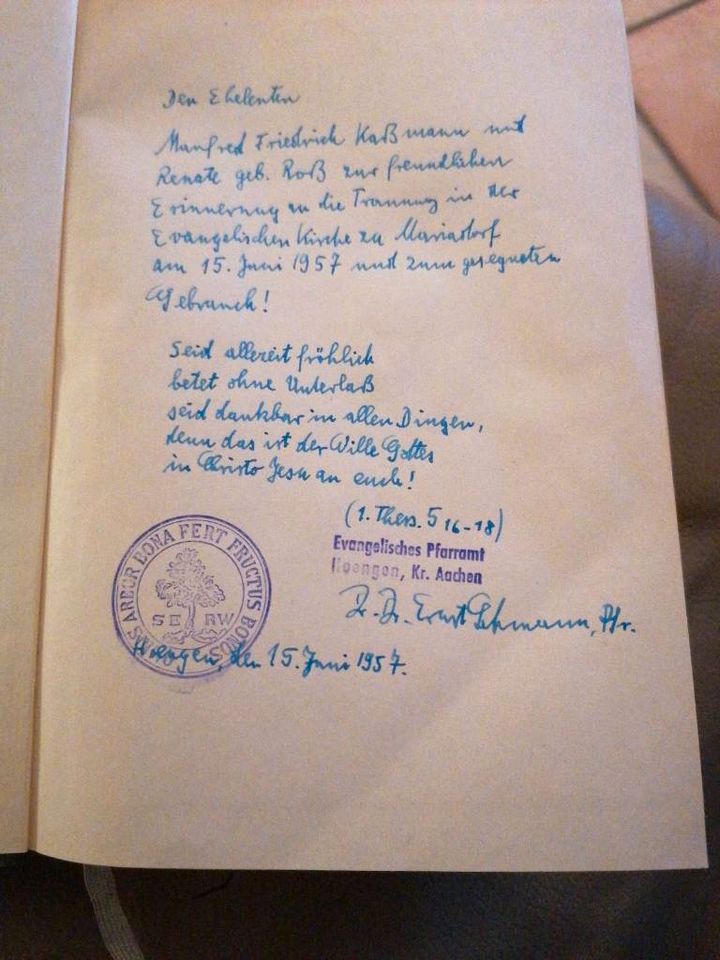 Den Eheleuten
Manfred Friedrich Kaßmann und
Renate geb. Roß zur freundlichen
Erinnerung an die Trauung in der
Evangelischen Kirche zu Mariadorf
am 15. Juni 1957 und zum gesegneten
Gebrauch!
Seid allezeit fröhlich
betet ohne Unterlaß
seid dankbar in allen Dingen,
denn das ist der Wille Gottes
in Christo Jesu an euch!
(1. Thess. 5 16-18)
Evangelisches Pfarramt
Hoengen, Kr. Aachen
Dr. Dr. Ernst Lehmann, Pfr.
OMNIS ARBOR BONA FERT FRUCTUS BONOS
SE RW
Hoengen, den 15. Juni 1957.